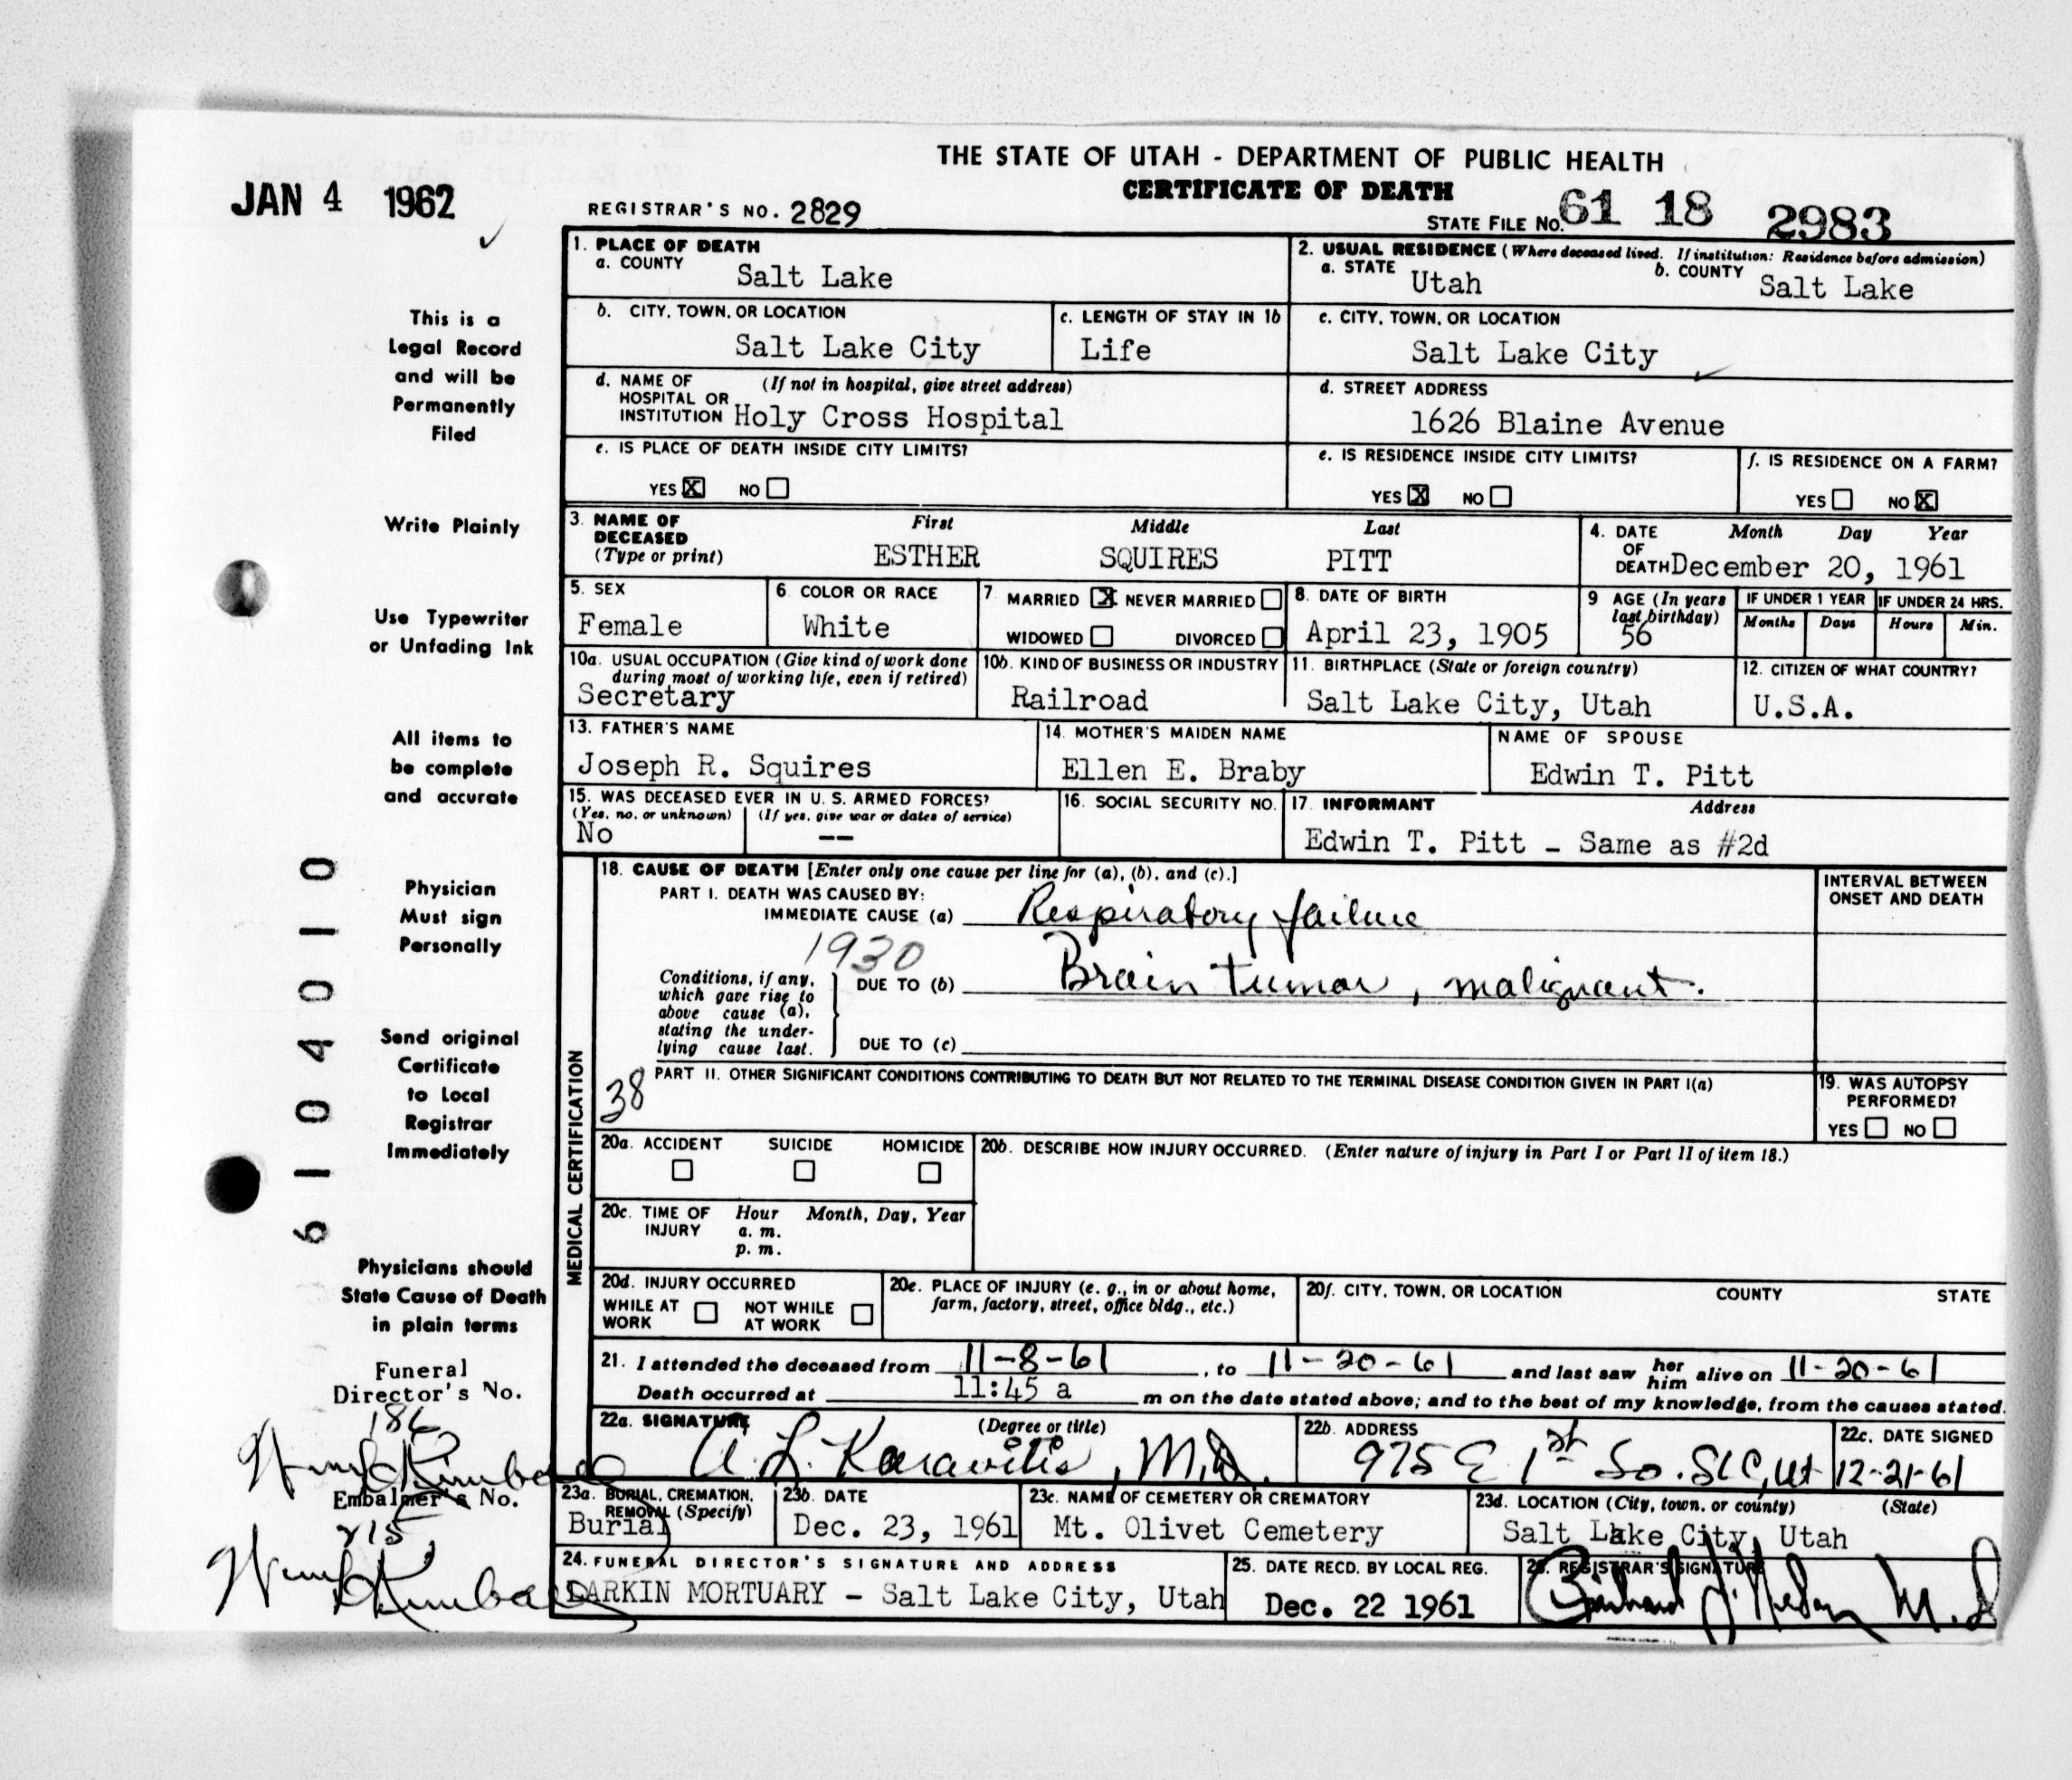 THE STATE OF UTAH - DEPARTMENT OF PUBLIC HEALTH
CERTIFICATE OF DEATH
JAN 4 1962
REGISTRAR'S NO. 2829
STATE FILE NO. 61 18 2983
This is a
Legal Record
and will be
Permanently
Filed
Write Plainly
Use Typewriter
or Unfading Ink
All items to
be complete
and accurate
Physician
Must sign
Personally
Send original
Certificate
to Local
Registrar
Immediately
Physicians should
State Cause of Death
in plain terms
Funeral
Director's No.
186
Embalmer's No.
215
61 04010
1. PLACE OF DEATH
a. COUNTY Salt Lake
2. USUAL RESIDENCE (Where deceased lived. If institution: Residence before admission)
a. STATE Utah b. COUNTY Salt Lake
b. CITY, TOWN, OR LOCATION
Salt Lake City
c. LENGTH OF STAY IN 1b
Life
c. CITY, TOWN, OR LOCATION
Salt Lake City
d. NAME OF HOSPITAL OR INSTITUTION (If not in hospital, give street address)
Holy Cross Hospital
d. STREET ADDRESS
1626 Blaine Avenue
e. IS PLACE OF DEATH INSIDE CITY LIMITS?
YES X NO
e. IS RESIDENCE INSIDE CITY LIMITS?
YES X NO
f. IS RESIDENCE ON A FARM?
YES NO X
3. NAME OF DECEASED (Type or print)
First Middle Last
ESTHER SQUIRES PITT
4. DATE OF DEATH Month Day Year
December 20, 1961
5. SEX
Female
6. COLOR OR RACE
White
7. MARRIED X NEVER MARRIED
WIDOWED DIVORCED
8. DATE OF BIRTH
April 23, 1905
9 AGE (In years last birthday)
56
IF UNDER 1 YEAR IF UNDER 24 HRS.
Months Days Hours Min.
10a. USUAL OCCUPATION (Give kind of work done during most of working life, even if retired)
Secretary
10b. KIND OF BUSINESS OR INDUSTRY
Railroad
11. BIRTHPLACE (State or foreign country)
Salt Lake City, Utah
12. CITIZEN OF WHAT COUNTRY?
U.S.A.
13. FATHER'S NAME
Joseph R. Squires
14. MOTHER'S MAIDEN NAME
Ellen E. Braby
NAME OF SPOUSE
Edwin T. Pitt
15. WAS DECEASED EVER IN U. S. ARMED FORCES?
(Yes, no, or unknown) (If yes, give war or dates of service)
No --
16. SOCIAL SECURITY NO.
17. INFORMANT Address
Edwin T. Pitt - Same as #2d
MEDICAL CERTIFICATION
18. CAUSE OF DEATH [Enter only one cause per line for (a), (b), and (c).]
PART I. DEATH WAS CAUSED BY:
IMMEDIATE CAUSE (a) Respiratory failure
INTERVAL BETWEEN
ONSET AND DEATH
1930
Conditions, if any, which gave rise to above cause (a), stating the underlying cause last.
DUE TO (b) Brain tumor, malignant.
DUE TO (c)
38
PART II. OTHER SIGNIFICANT CONDITIONS CONTRIBUTING TO DEATH BUT NOT RELATED TO THE TERMINAL DISEASE CONDITION GIVEN IN PART I(a)
19. WAS AUTOPSY PERFORMED?
YES NO
20a. ACCIDENT SUICIDE HOMICIDE
20b. DESCRIBE HOW INJURY OCCURRED. (Enter nature of injury in Part I or Part II of item 18.)
20c. TIME OF INJURY Hour Month, Day, Year
a. m.
p. m.
20d. INJURY OCCURRED
WHILE AT WORK NOT WHILE AT WORK
20e. PLACE OF INJURY (e. g., in or about home, farm, factory, street, office bldg., etc.)
20f. CITY, TOWN, OR LOCATION COUNTY STATE
21. I attended the deceased from 11-8-61, to 11-20-61 and last saw her him alive on 11-20-61
Death occurred at 11:45 a m on the date stated above; and to the best of my knowledge, from the causes stated.
22a. SIGNATURE (Degree or title)
A. L. Karavitis, M.D.
22b. ADDRESS
975 E 1st So. SLC, Ut
22c. DATE SIGNED
12-21-61
23a. BURIAL, CREMATION, REMOVAL (Specify)
Burial
23b. DATE
Dec. 23, 1961
23c. NAME OF CEMETERY OR CREMATORY
Mt. Olivet Cemetery
23d. LOCATION (City, town, or county) (State)
Salt Lake City, Utah
24. FUNERAL DIRECTOR'S SIGNATURE AND ADDRESS
LARKIN MORTUARY - Salt Lake City, Utah
25. DATE RECD. BY LOCAL REG.
Dec. 22 1961
26. REGISTRAR'S SIGNATURE
M.D